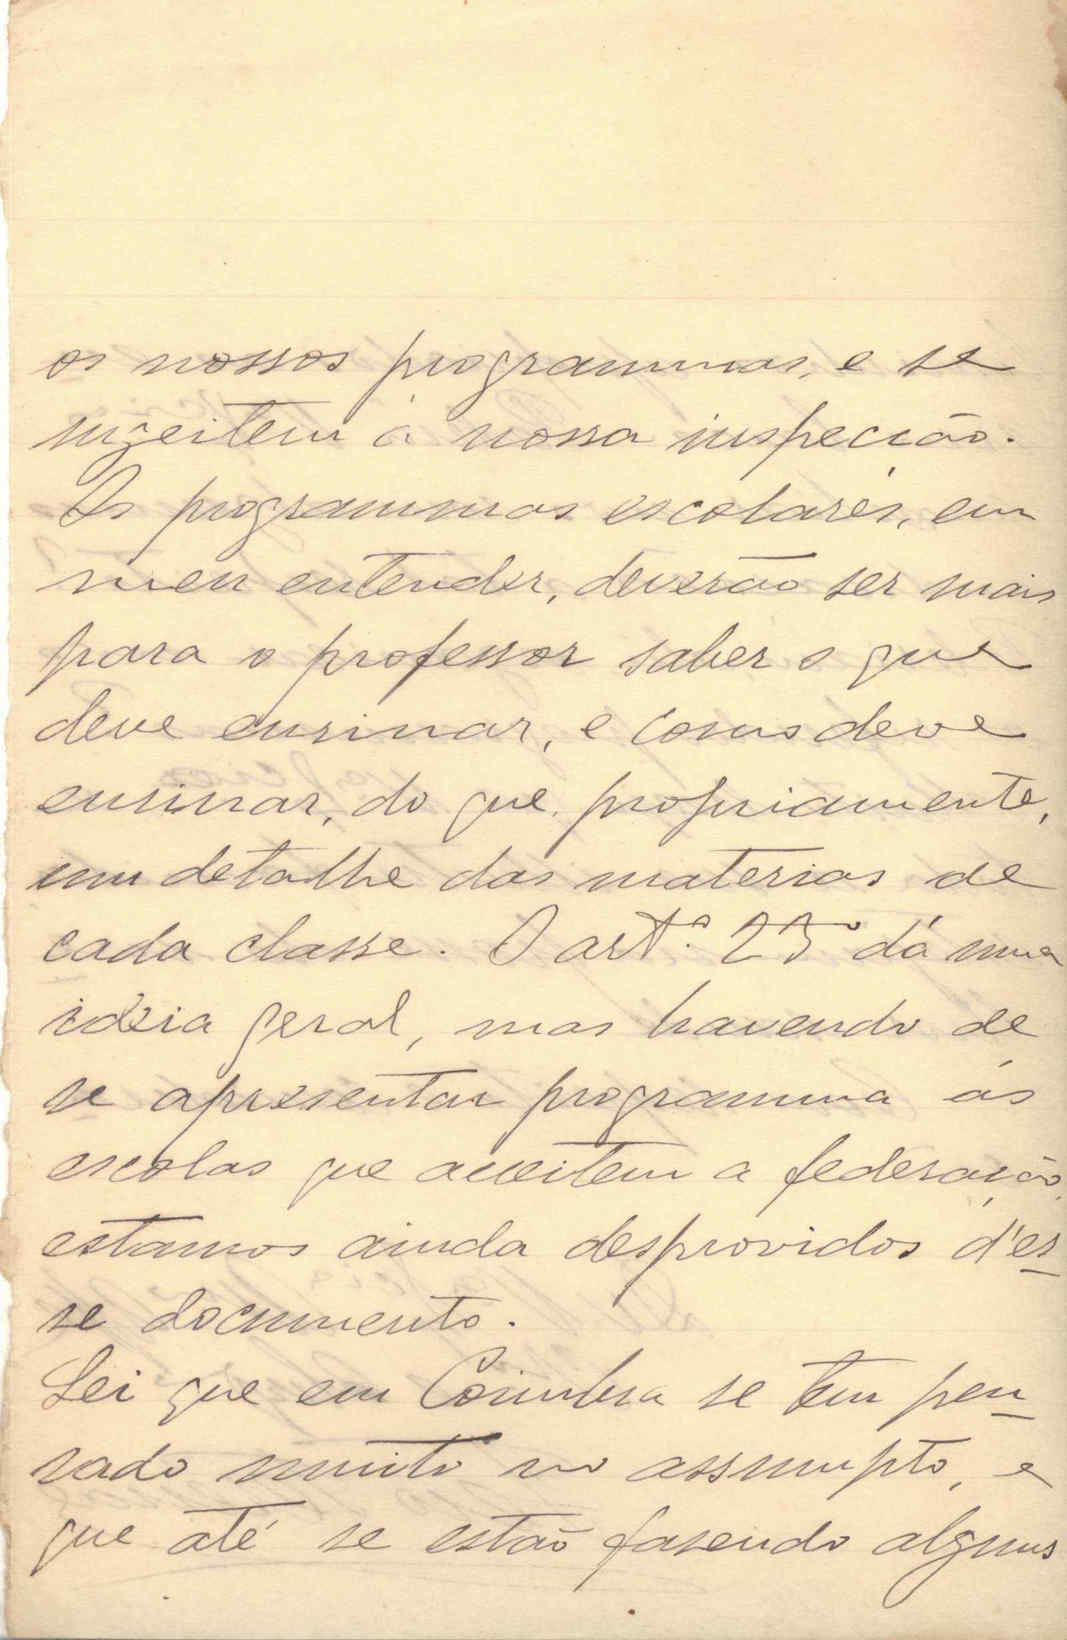 os nossos programmas, e se
sugeitem á nossa inspecção.
Os programmas escolares, em
meu entender, deverão ser mais
para o professor saber o que
deve ensinar, e como deve
ensinar, do que, propriamente,
um detalhe das materias de
cada classe. O artº. 25º dá uma
ideia geral, mas havendo de
se apresentar programma ás
escolas que acceitem a federação,
estamos ainda desprovidos d'es-
se documento.
Sei que em Coimbra se tem pen-
sado muito no assumpto, e
que até se estão fasendo alguns